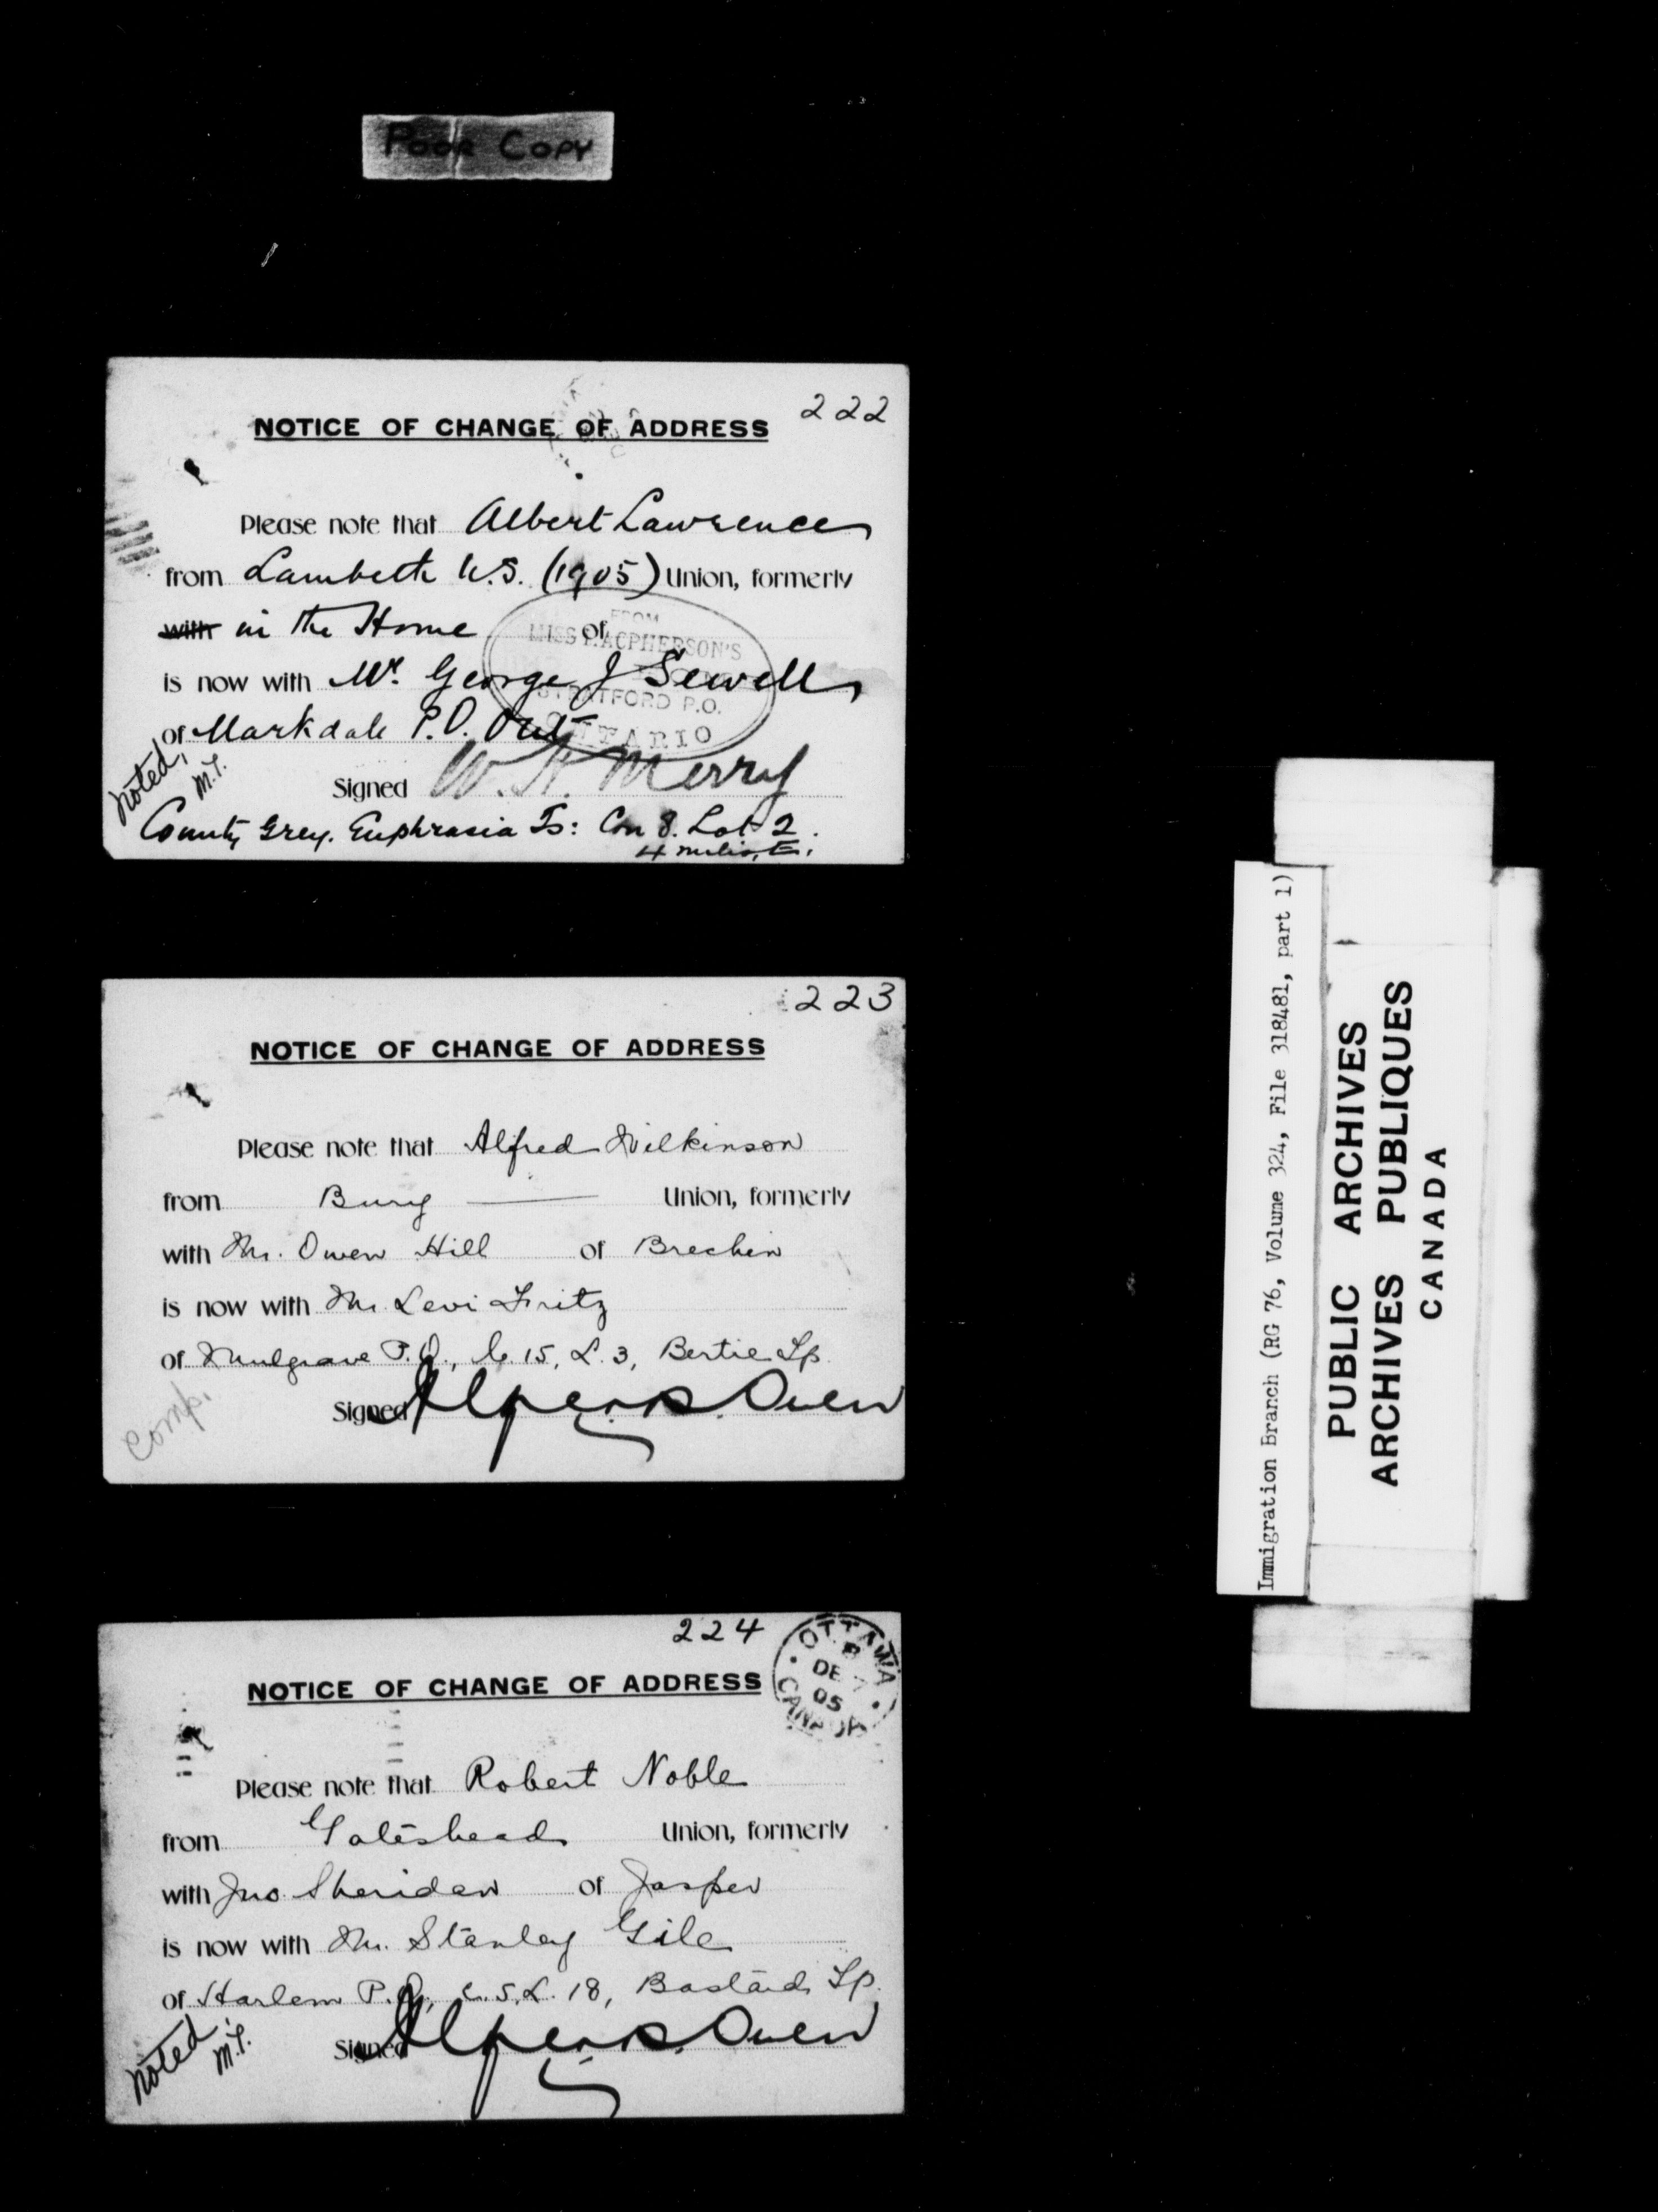 Poor Copy
222
NOTICE OF CHANGE OF ADDRESS
Please note that Albert Lawrence
from Lambeth W.S. (1905) Union, formerly
with in the Home of
FROM
MISS MACPHERSON'S
STRATFORD P.O.
ONTARIO
is now with Mr. George J Sewell
of Markdale P.O. Ont
Signed W. H. Merry
noted, M.T.
County Grey. Euphrasia Ts: Con 8. Lot 2.
4 miles, E.
223
NOTICE OF CHANGE OF ADDRESS
Please note that Alfred Wilkinson
from Bury Union, formerly
with Mr. Owen Hill of Brechin
is now with Mr Levi Fritz
of Mulgrave P.O., C. 15, L. 3, Bertie Tp.
Signed Owen
Comp.
224
OTTAWA
DE 7
05
CANADA
NOTICE OF CHANGE OF ADDRESS
Please note that Robert Noble
from Gateshead Union, formerly
with Jno Sheridan of Jasper
is now with Mr. Stanley Gile
of Harlem P.O., C. 5, L. 18, Bastard Tp.
Signed Owen
noted. M.T.
Immigration Branch (RG 76, Volume 324, File 318481, part 1)
PUBLIC ARCHIVES
ARCHIVES PUBLIQUES
CANADA